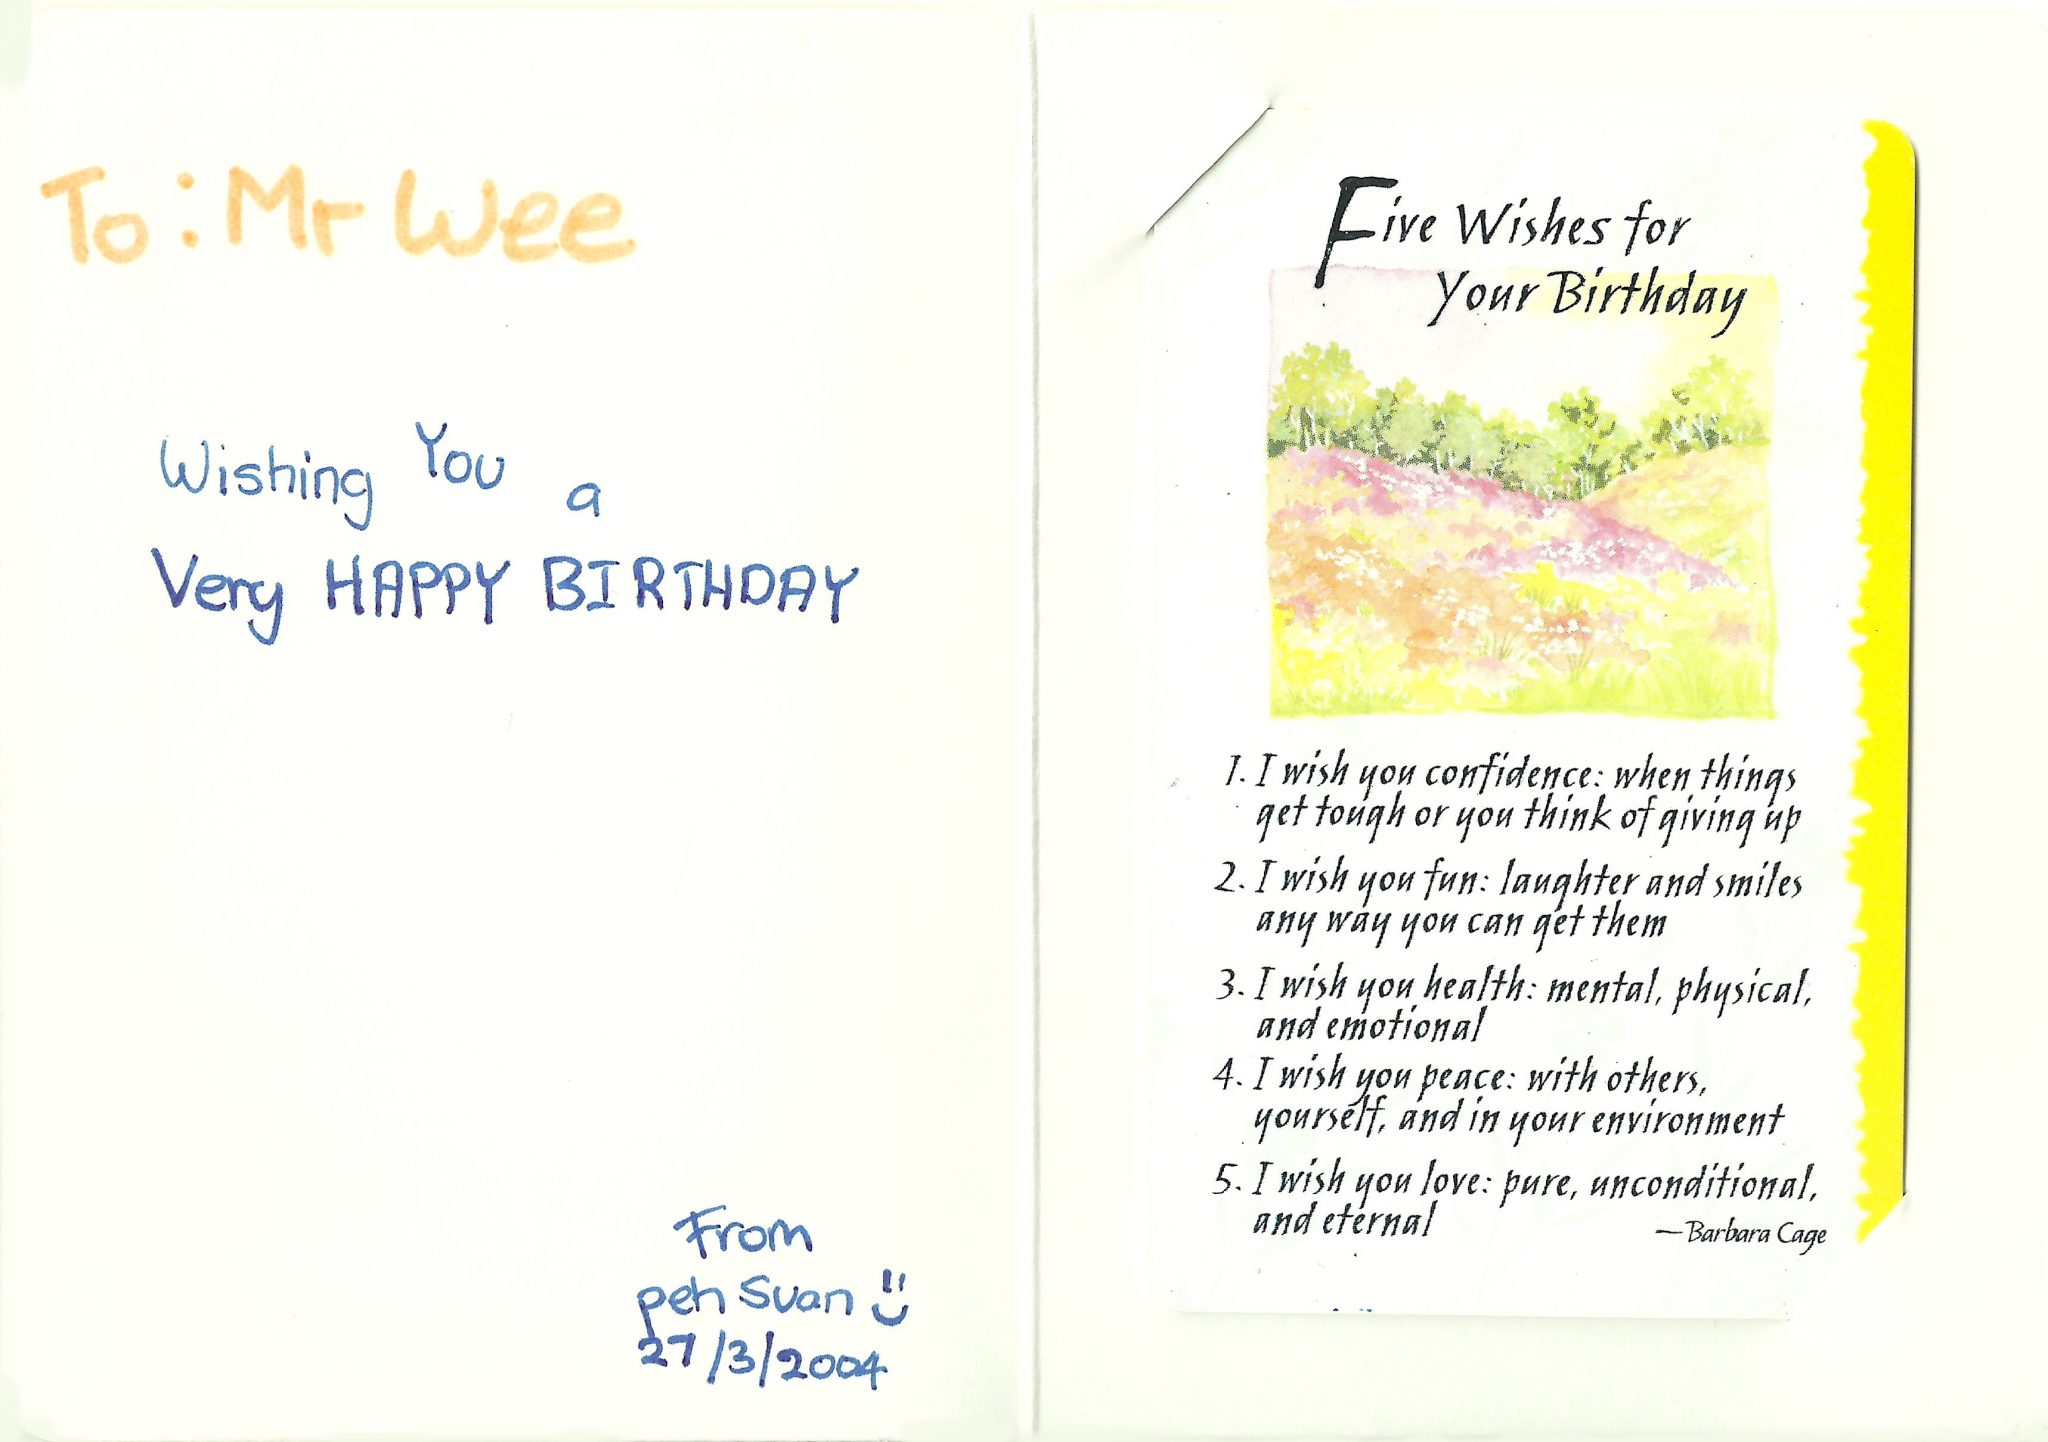 To: Mr Wee
Wishing You a
Very HAPPY BIRTHDAY
From
peh Suan
27/3/2004
Five Wishes for
Your Birthday
1. I wish you confidence: when things
get tough or you think of giving up
2. I wish you fun: laughter and smiles
any way you can get them
3. I wish you health: mental, physical,
and emotional
4. I wish you peace: with others,
yourself, and in your environment
5. I wish you love: pure, unconditional,
and eternal
—Barbara Cage